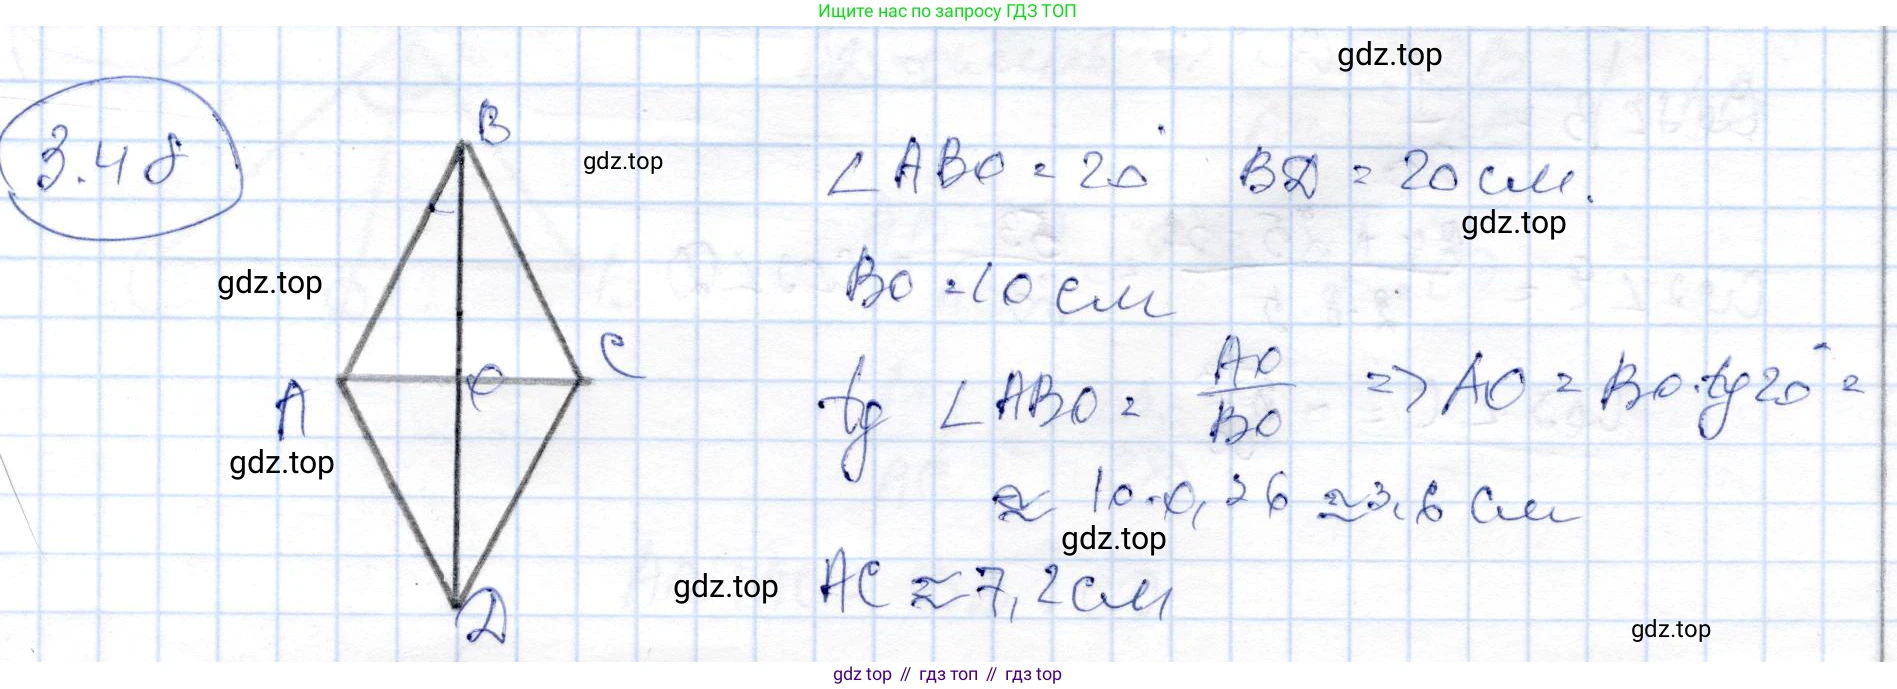 Ищите нас по запросу ГДЗ ТОП
gdz.top
3.48
B
gdz.top
∠ABO = 20° BD = 20 см.
gdz.top
gdz.top
BO = 10 см
C
A
O
tg ∠ABO = AO/BO => AO = BO·tg20° =
gdz.top
≈ 10·0,36 ≈ 3,6 см
gdz.top
gdz.top
AC ≈ 7,2 см
D
gdz.top
gdz top // гдз топ // gdz top